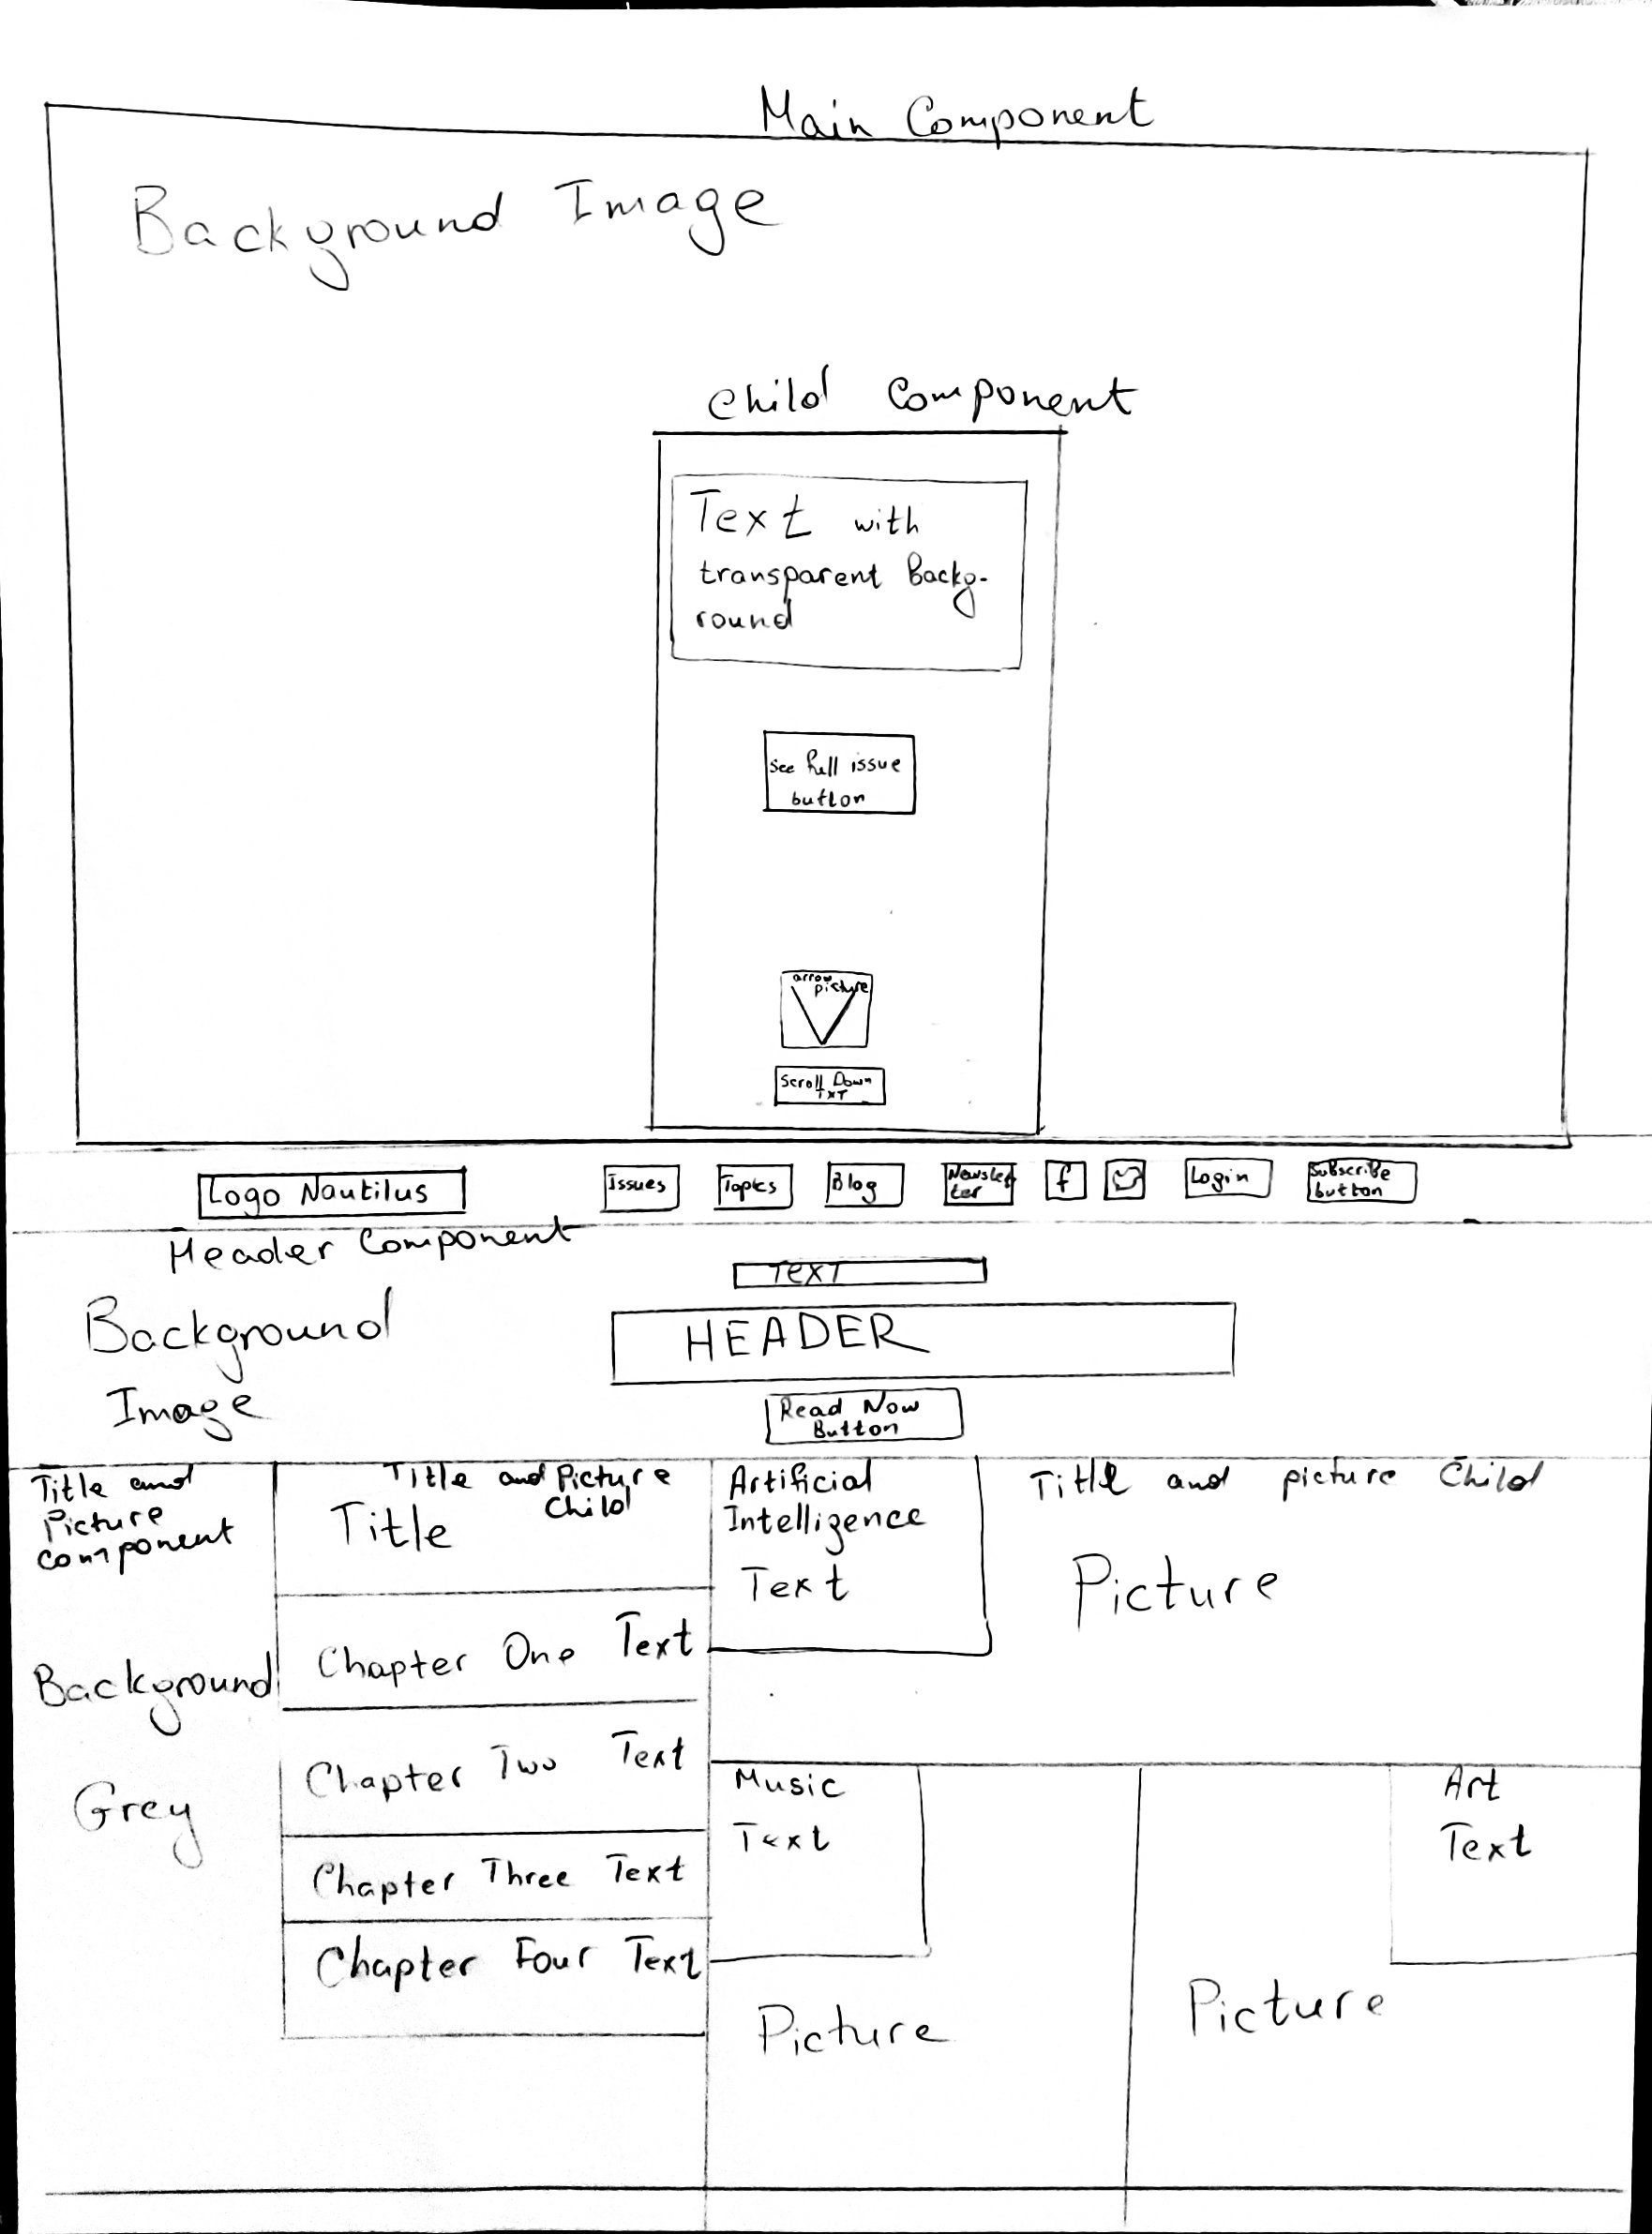 Main Component
Background Image
Child Component
Text with
transparent Backg-
round
See full issue
button
arrow
picture
Scroll Down
TXT
Logo Nautilus
Issues
Topics
Blog
Newslet
ter
f
Login
Subscribe
button
Header Component
TEXT
Background
Image
HEADER
Read Now
Button
Title and
Picture
component
Background
Grey
Title and Picture
Child
Title
Chapter One Text
Chapter Two Text
Chapter Three Text
Chapter Four Text
Artificial
Intelligence
Text
Title and picture Child
Picture
Music
Text
Picture
Art
Text
Picture